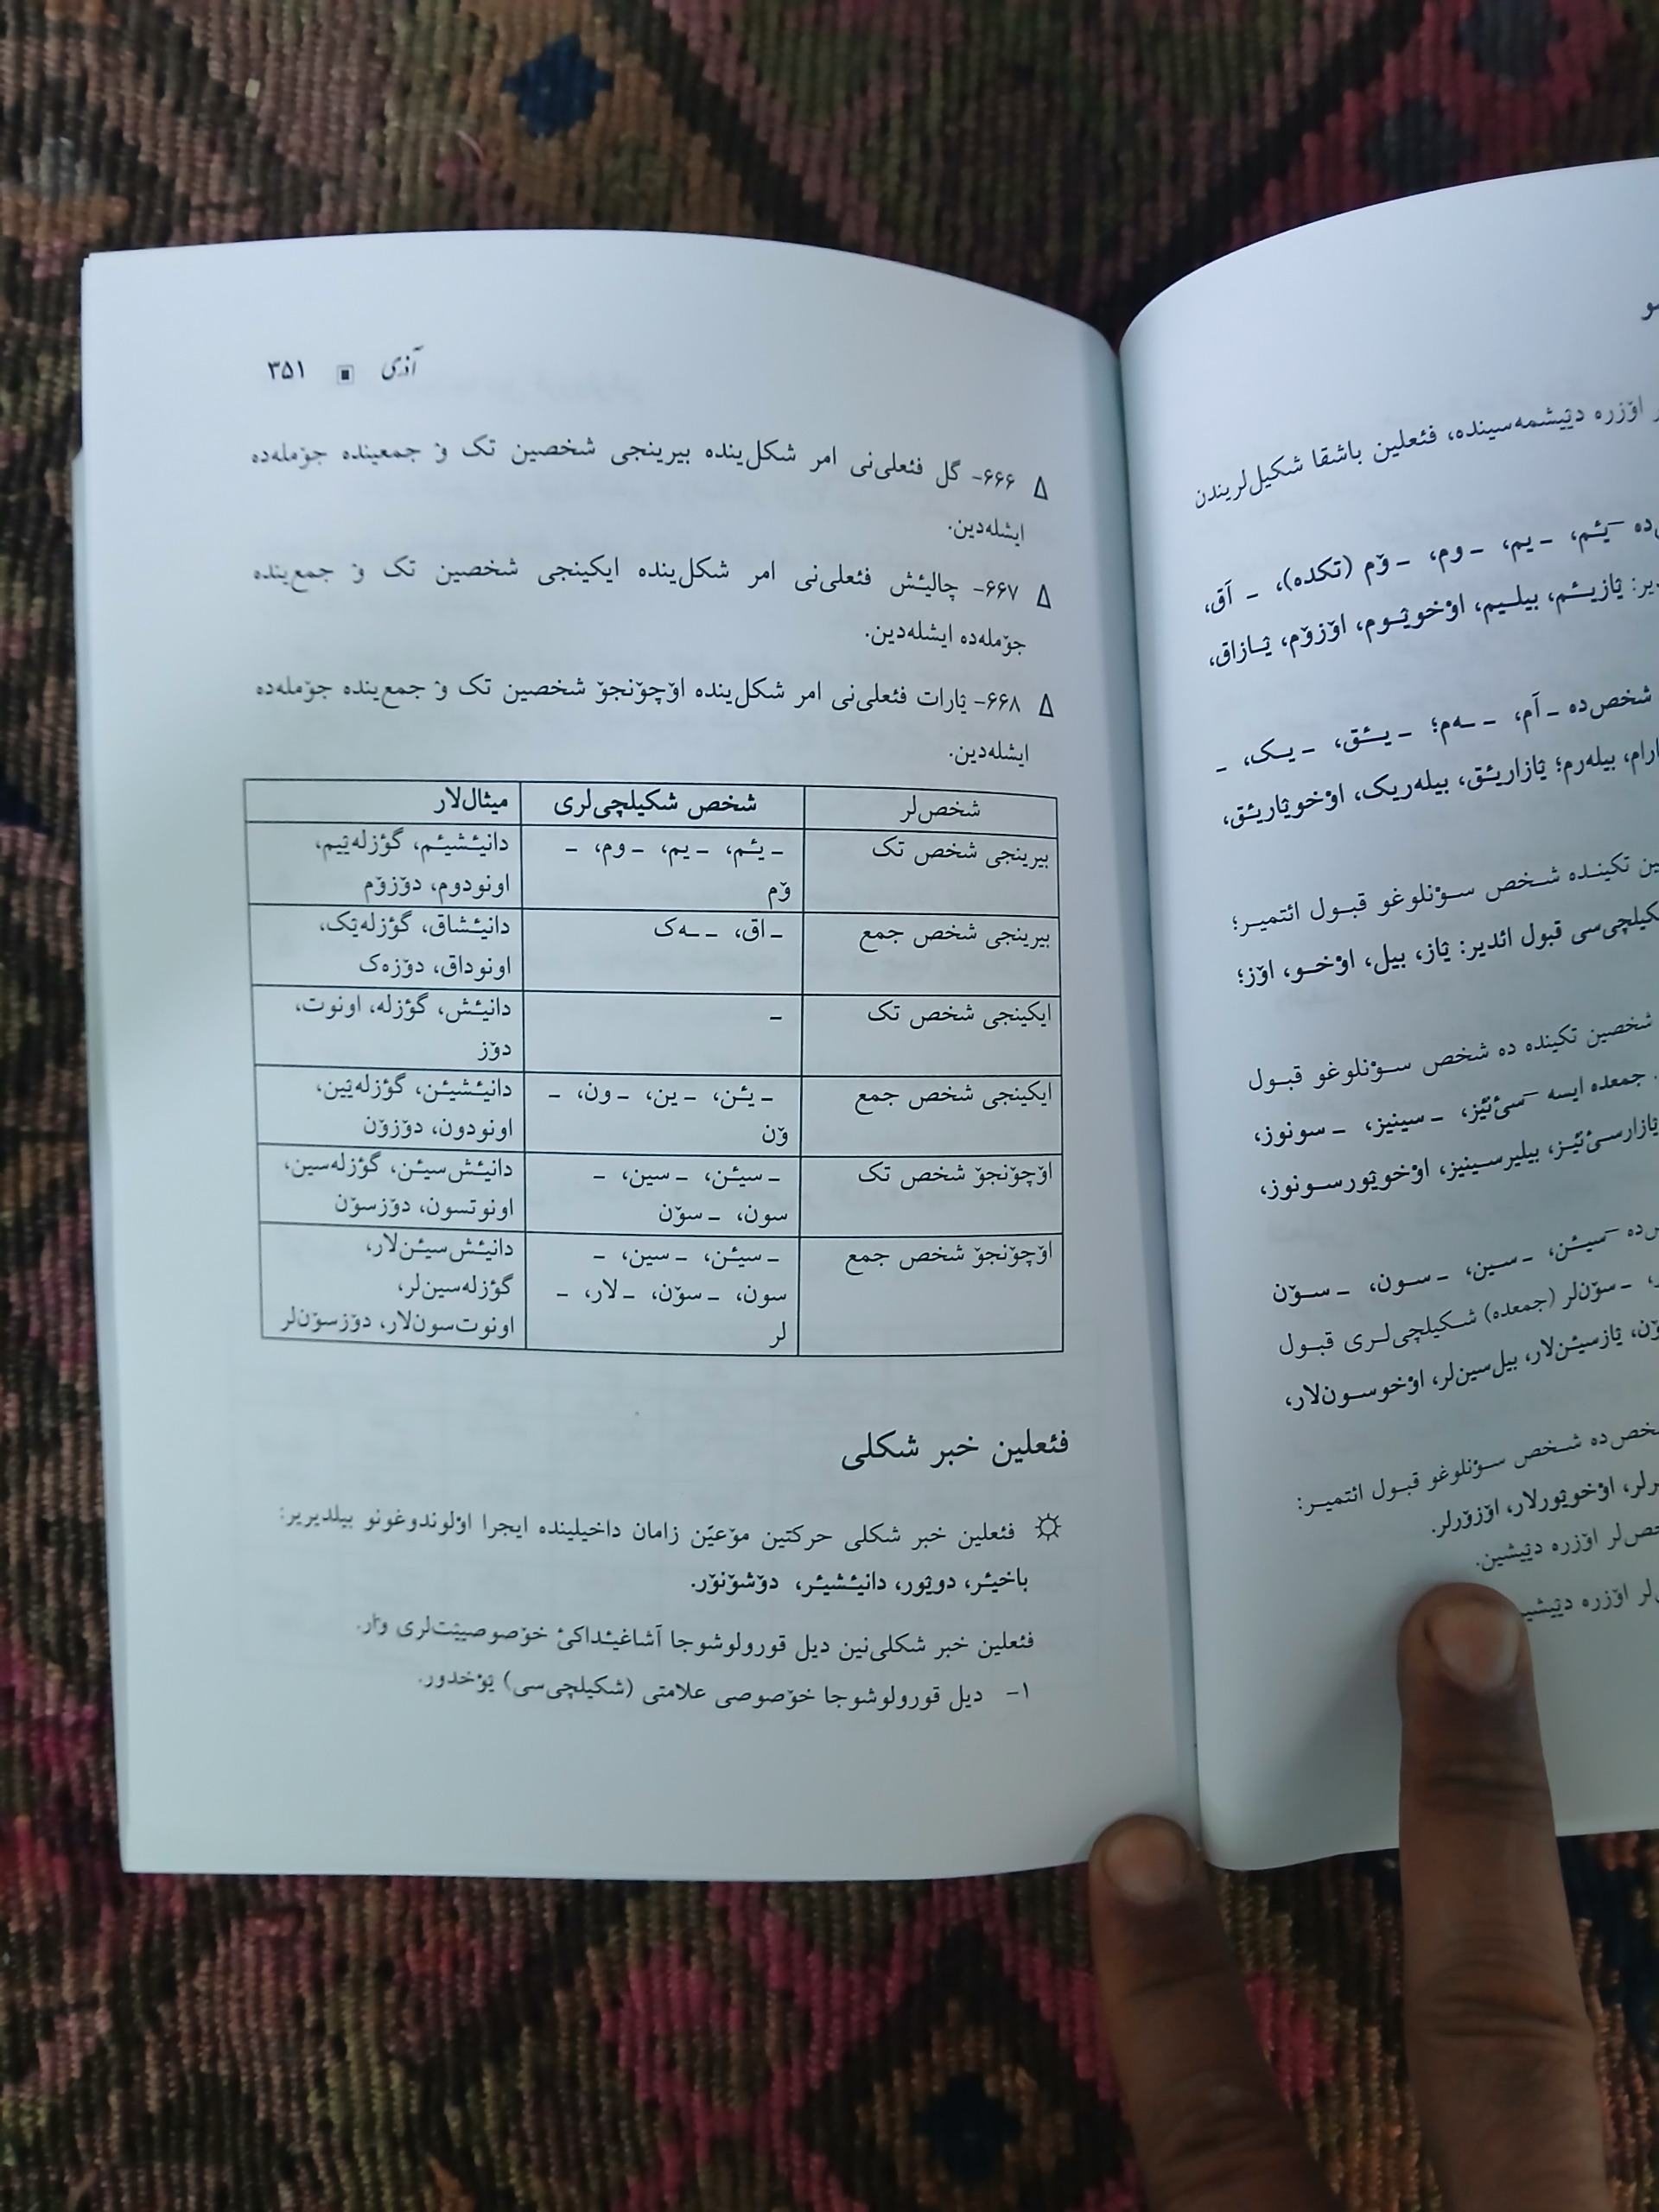 آذری ▣ ۳۵۱
Δ ۶۶۶- گل فئعلی‌نی امر شکل‌ینده بیرینجی شخصین تک وٚ جمعینده جوٚمله‌ده
ایشله‌دین.
Δ ۶۶۷- چالیئش فئعلی‌نی امر شکل‌ینده ایکینجی شخصین تک وٚ جمع‌ینده
جوٚمله‌ده ایشله‌دین.
Δ ۶۶۸- یٛارات فئعلی‌نی امر شکل‌ینده اوٚچوٚنجوٚ شخصین تک وٚ جمع‌ینده جوٚمله‌ده
ایشله‌دین.
شخص‌لر شخص شکیلچی‌لری میثال‌لار
بیرینجی شخص تک ـ یئم، ـ یم، ـ وم، ـ دانیئشیئم، گؤزله‌یٛیم،
وٚم اونودوم، دوٚزوٚم
بیرینجی شخص جمع ـ اق، ـ ـه‌ک دانیئشاق، گؤزله‌یٛک،
اونوداق، دوٚزه‌ک
ایکینجی شخص تک ـ دانیئش، گؤزله، اونوت،
دوٚز
ایکینجی شخص جمع ـ یئن، ـ ین، ـ ون، ـ دانیئشیئن، گؤزله‌یٛین،
وٚن اونودون، دوٚزوٚن
اوٚچوٚنجوٚ شخص تک ـ سیئن، ـ سین، ـ دانیئش‌سیئن، گؤزله‌سین،
سون، ـ سوٚن اونوتسون، دوٚزسوٚن
اوٚچوٚنجوٚ شخص جمع ـ سیئن، ـ سین، ـ دانیئش‌سیئن‌لار،
سون، ـ سوٚن، ـ لار، ـ گؤزله‌سین‌لر،
لر اونوت‌سون‌لار، دوٚزسوٚن‌لر
فئعلین خبر شکلی
☼ فئعلین خبر شکلی حرکتین موٚعیّن زامان داخیلینده ایجرا اوْلوندوغونو بیلدیریر:
باخیئر، دویٛور، دانیئشیئر، دوٚشوٚنوٚر.
فئعلین خبر شکلی‌نین دیل قورولوشوجا آشاغیئداکئ خوٚصوصییٛت‌لری وار.
۱- دیل قورولوشوجا خوٚصوصی علامتی (شکیلچی‌سی) یٛوْخدور.
اوٚزره دیٛیشمه‌سینده، فئعلین باشقا شکیل‌لریندن
ـ یئم، ـ یم، ـ وم، ـ وٚم (تکده)، ـ آق،
یٛازیئم، بیلیم، اوْخویٛوم، اوٚزوٚم، یٛازاق،
شخص‌ده ـ آم، ـ ـه‌م؛ ـ یئق، ـ یک، ـ
بیله‌رم؛ یٛازاریئق، بیله‌ریک، اوْخویٛاریئق،
تکینده شخص سوْنلوغو قبول ائتمیر؛
قبول ائدیر: یٛاز، بیل، اوْخو، اوٚز؛
شخصین تکینده ده شخص سوْنلوغو قبول
جمعده ایسه ـ سیئنیئز، ـ سینیز، ـ سونوز،
یٛازارسیئنیئز، بیلیرسینیز، اوْخویٛورسونوز،
ـ سیئن، ـ سین، ـ سون، ـ سوٚن
ـ سوٚن‌لر (جمعده) شکیلچی‌لری قبول
یٛازسیئن‌لار، بیل‌سین‌لر، اوْخوسون‌لار،
شخص سوْنلوغو قبول ائتمیر:
اوْخویٛورلار، اوٚزوٚرلر.
اوٚزره دیٛیشین.
اوٚزره